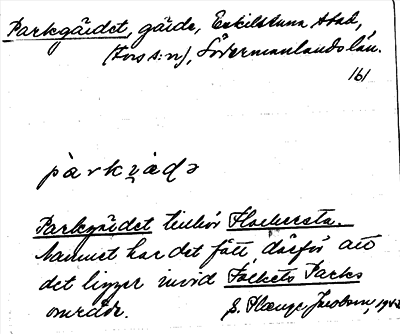 Parkgärdet, gärde, Eskilstuna stad,
(Fors s:n), Södermanlands län.
161
pàrkjàdə
Parkgärdet tillhör Flackersta.
Namnet har det fått därför att
det ligger invid Folkets Parks
område.
S. Jacobson, 1942